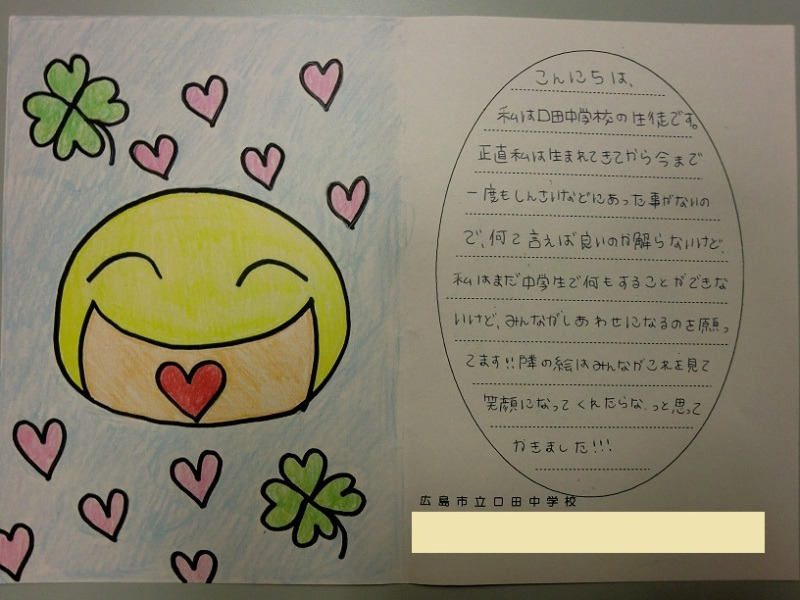 こんにちは、
私は口田中学校の生徒です。
正直私は生まれてきてから今まで
一度もしんさいなどにあった事がないの
で、何て言えば良いのか解らないけど、
私はまだ中学生で何もすることができな
いけど、みんながしあわせになるのを願っ
てます!!隣の絵はみんながこれを見て
笑顔になってくれたらな、っと思って
かきました!!!
広島市立口田中学校